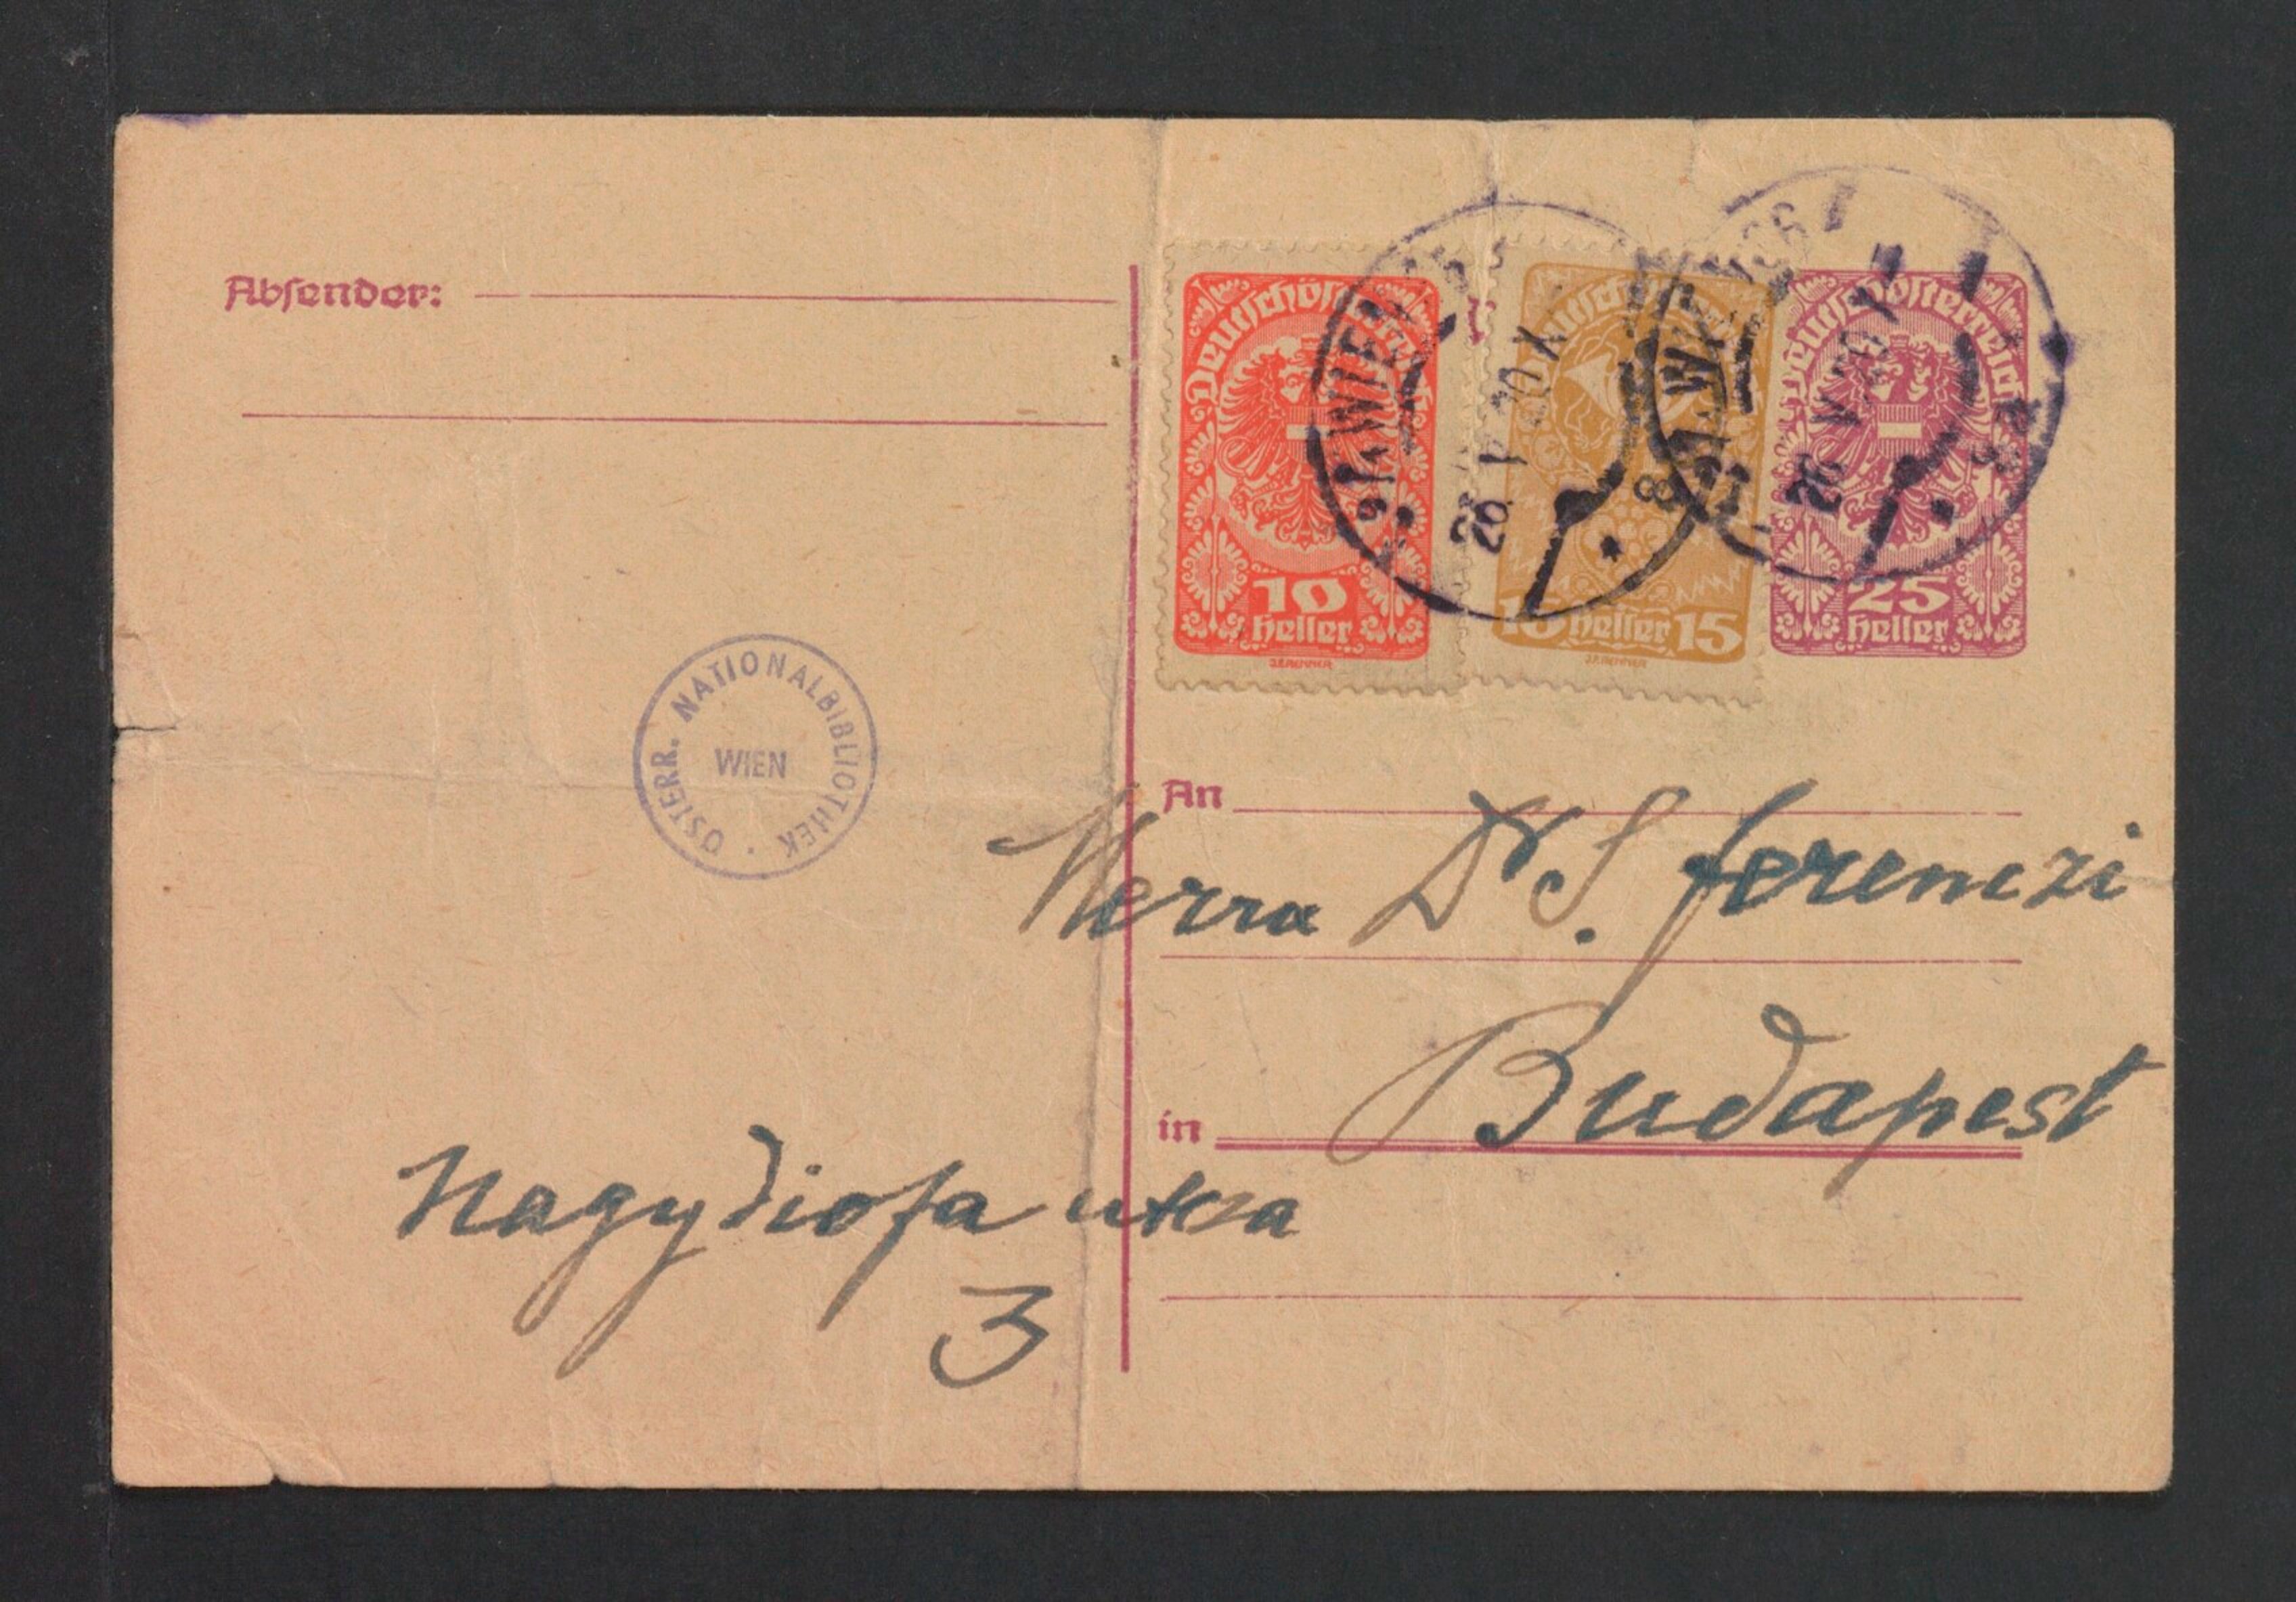 Absender:
Deutschösterreich
10
heller
J.F.RENNER
15 heller 15
J.F.RENNER
Deutschösterreich
25
heller
9/1 WIEN
26. V. 20 X
9/1 WIEN
26. V. 20
ÖSTERR. NATIONALBIBLIOTHEK
WIEN
An
Herrn Dr S. Ferenczi
in Budapest
Nagydiofa utcza
3